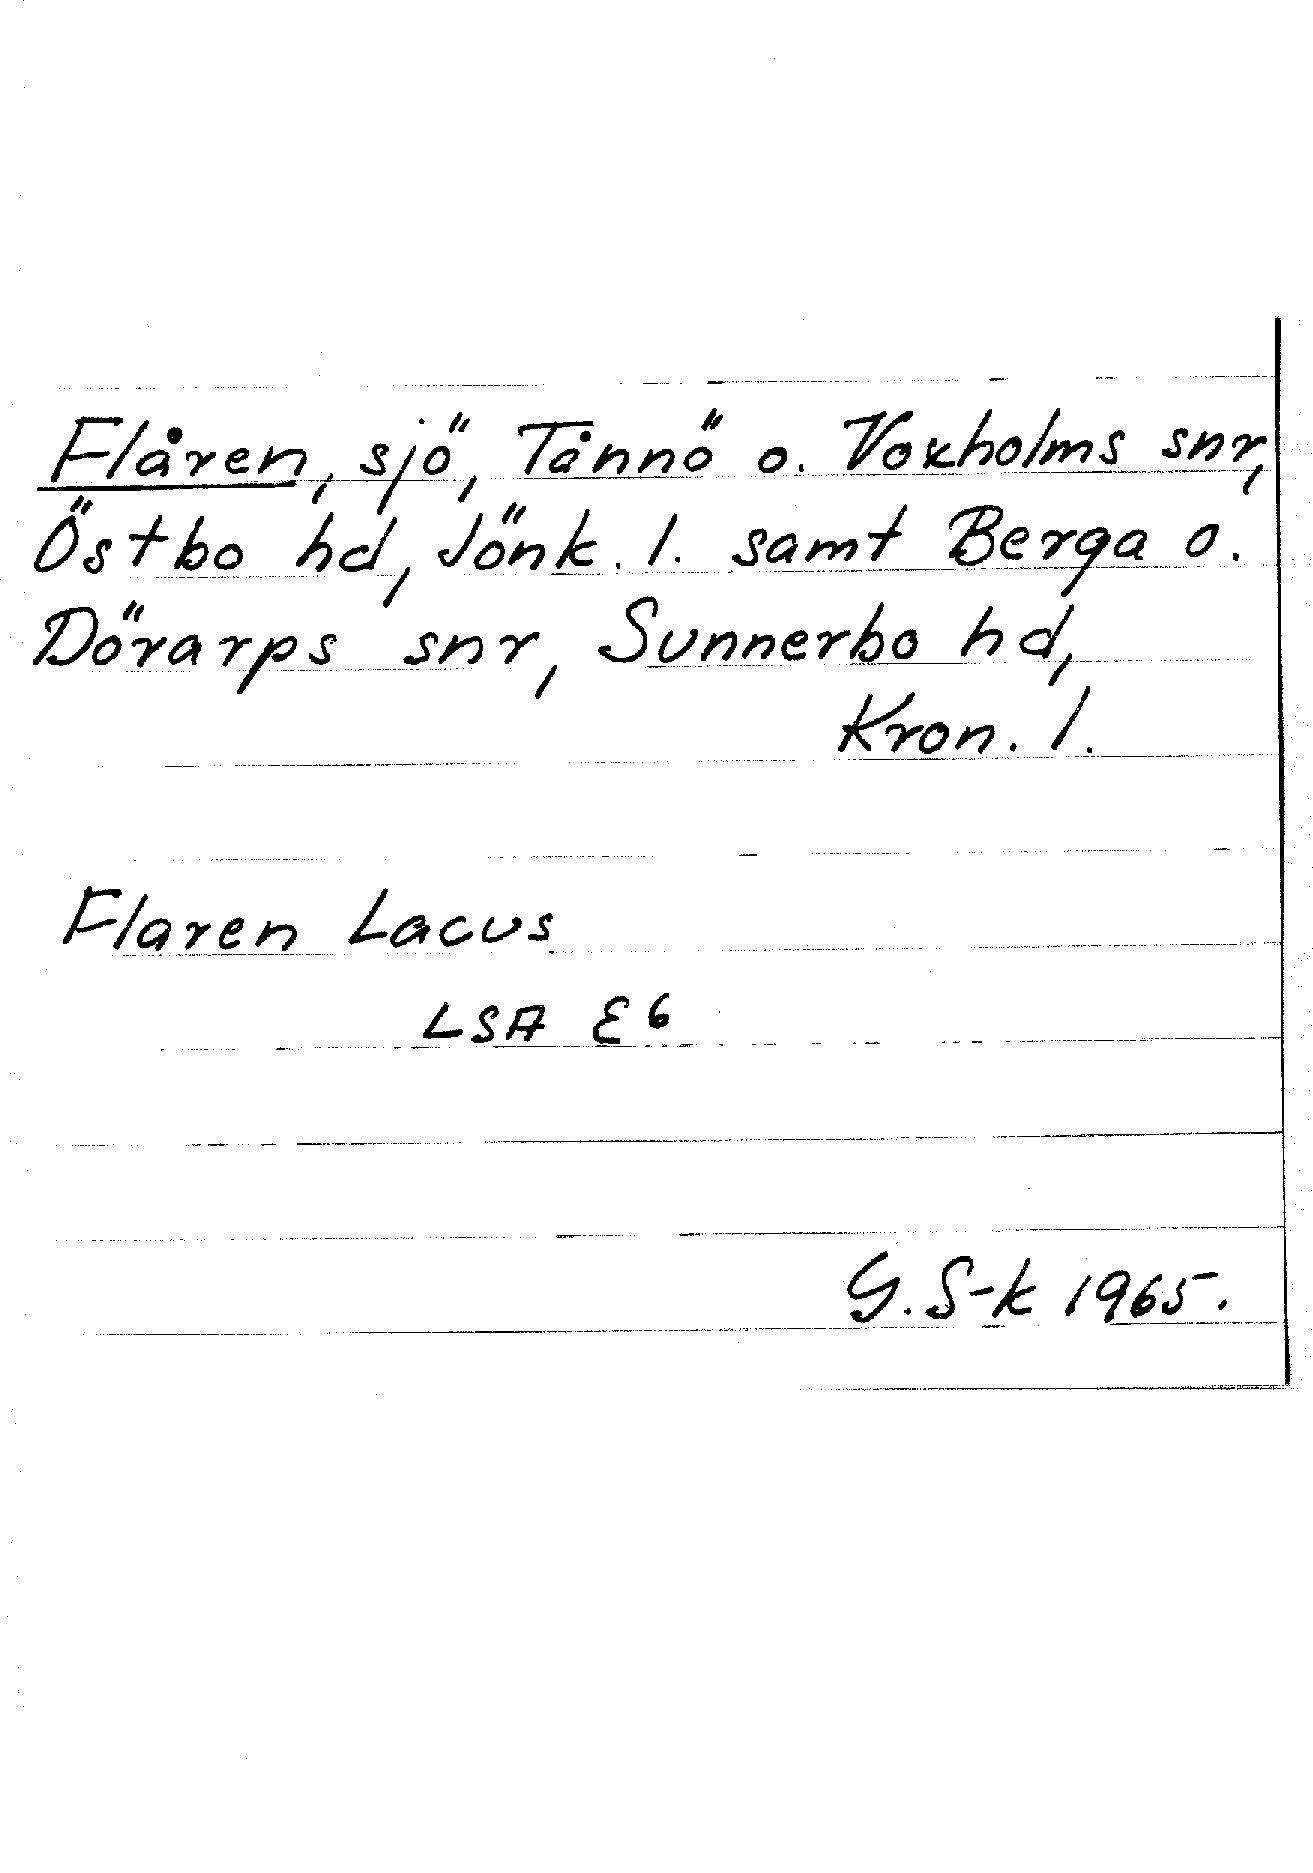 Flåren, sjö, Tånnö o. Voxholms snr,
Östbo hd, Jönk. l. samt Berga o.
Dörarps snr, Sunnerbo hd,
Kron. l.
Flaren Lacus
LSA E6
G. S-k 1965.